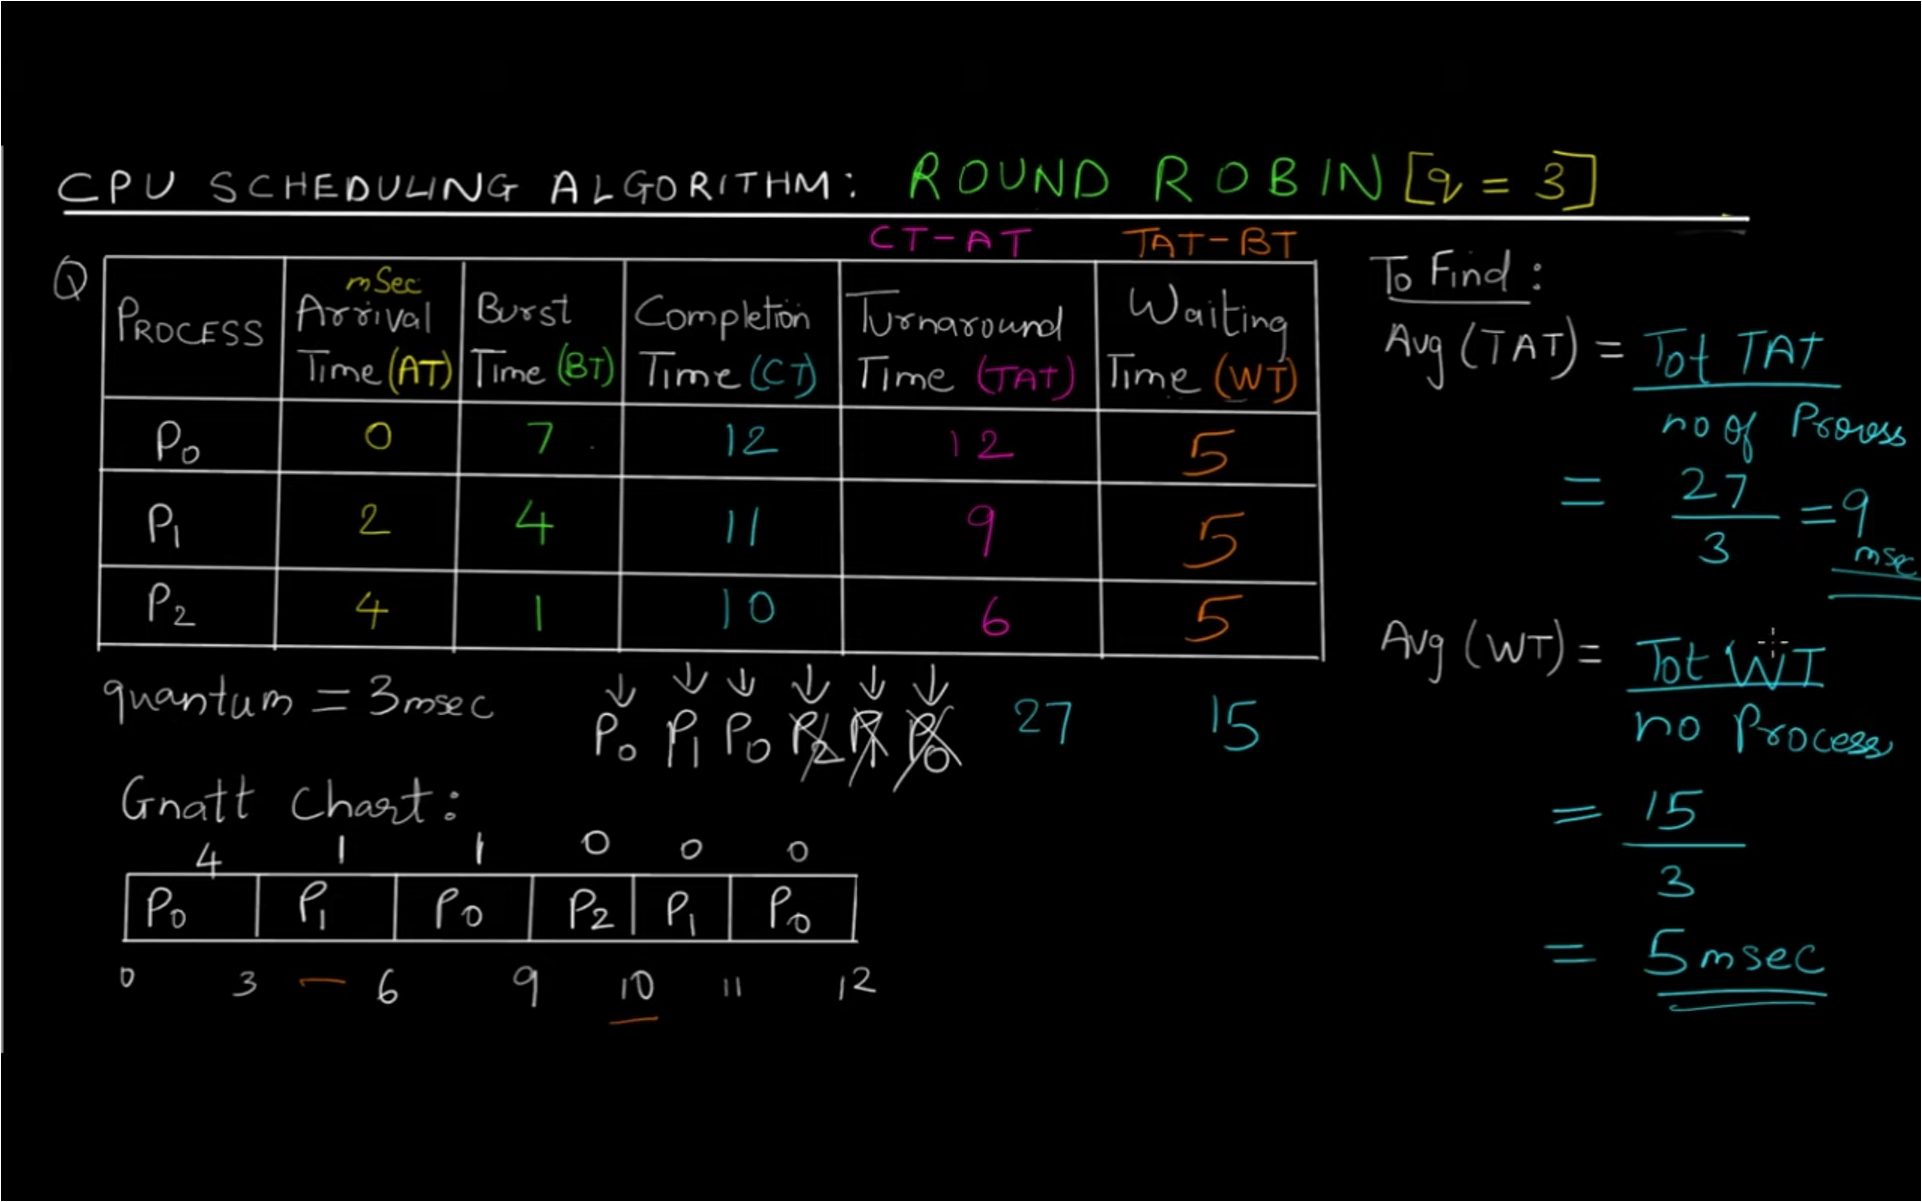 CPU SCHEDULING ALGORITHM: ROUND ROBIN [q = 3]
CT-AT TAT-BT
Q
PROCESS mSec Arrival Time (AT) Burst Time (BT) Completion Time (CT) Turnaround Time (TAT) Waiting Time (WT)
P0 0 7 12 12 5
P1 2 4 11 9 5
P2 4 1 10 6 5
27 15
quantum = 3msec
P0 P1 P0 P2 P1 P0
Gnatt Chart:
4 1 1 0 0 0
P0 P1 P0 P2 P1 P0
0 3 6 9 10 11 12
To Find:
Avg (TAT) = Tot TAT
no of Process
= 27
3
= 9
msec
Avg (WT) = Tot WT
no Process
= 15
3
= 5msec